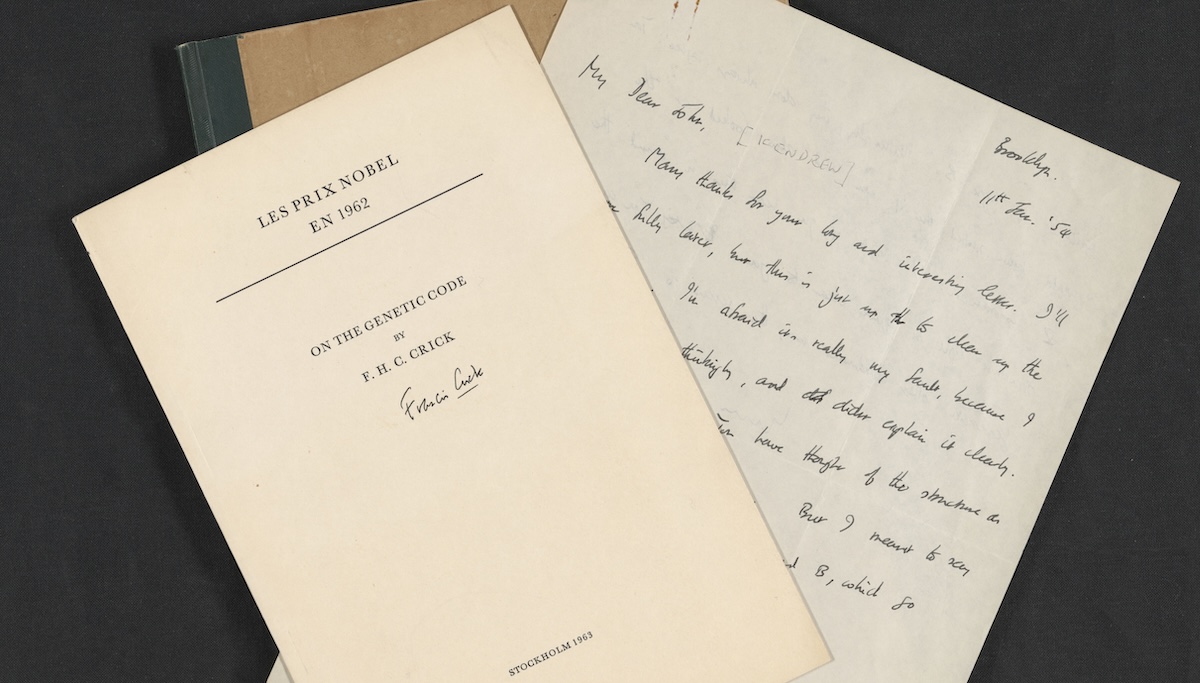 LES PRIX NOBEL
EN 1962
ON THE GENETIC CODE
BY
F. H. C. CRICK
Francis Crick
STOCKHOLM 1963
Brooklyn.
11th Jan. '54
My Dear John,
[KENDREW]
Many thanks for your long and interesting letter. I'll
fully later, but this is just to clear up the
I'm afraid its really my fault, because I
and didn't explain it clearly.
have thought of the structure as
But I meant to say
B, which go